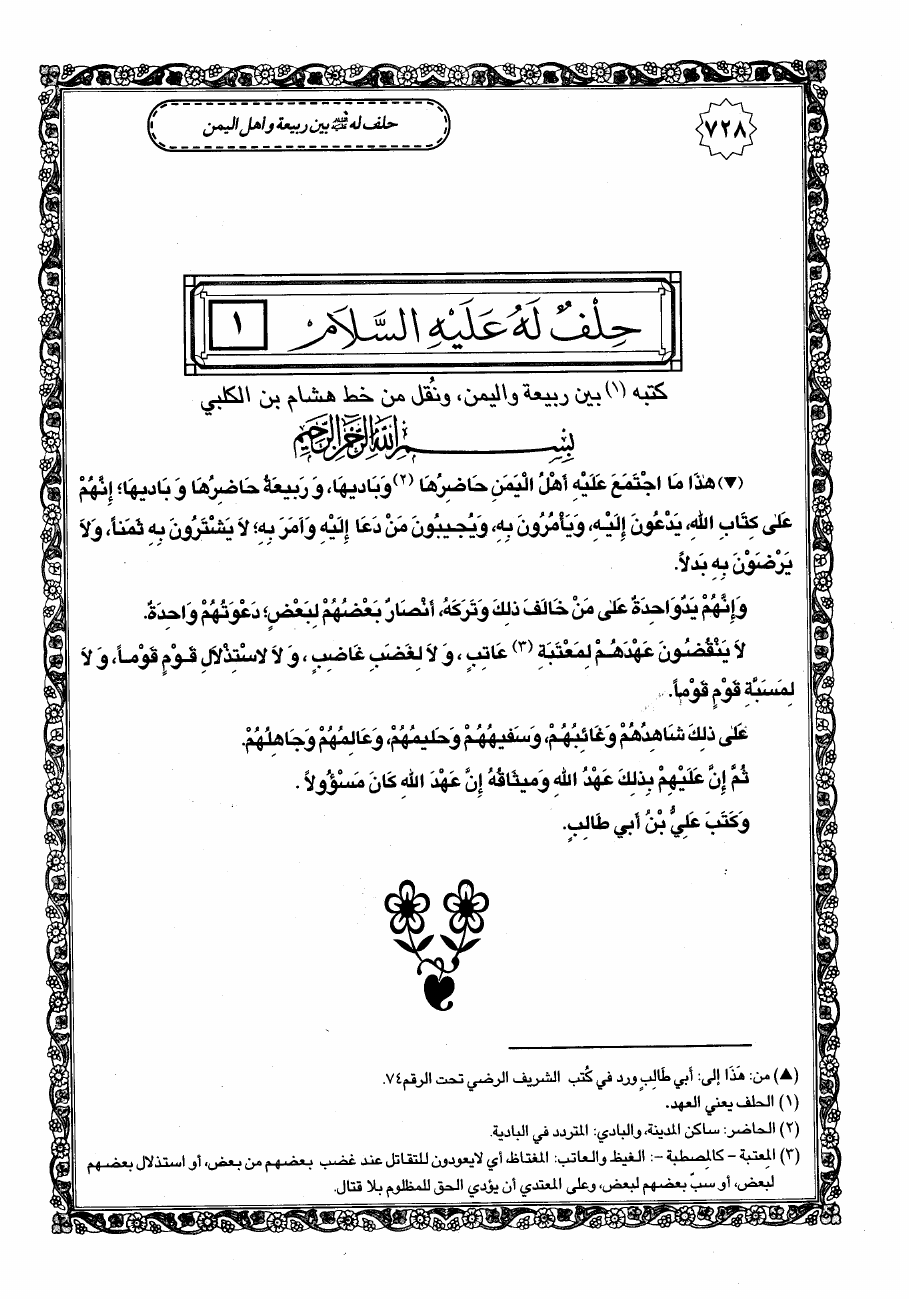 ٧٢٨
حلف له عليه السلام بين ربيعة و أهل اليمن
حِلْفٌ لَهُ عَلَيْهِ السَّلَامُ
١
كتبه (١) بين ربيعة واليمن، ونُقل من خط هشام بن الكلبي
بِسْمِ اللهِ الرَّحْمٰنِ الرَّحِيمِ
(▼) هٰذَا مَا اجْتَمَعَ عَلَيْهِ أَهْلُ الْيَمَنِ حَاضِرُهَا (٢) وَبَادِيهَا، وَ رَبِيعَةُ حَاضِرُهَا وَ بَادِيهَا؛ إِنَّهُمْ
عَلىٰ كِتَابِ اللهِ، يَدْعُونَ إِلَيْهِ، وَيَأْمُرُونَ بِهِ، وَيُجِيبُونَ مَنْ دَعَا إِلَيْهِ وَأَمَرَ بِهِ؛ لَا يَشْتَرُونَ بِهِ ثَمَناً، وَلَا
يَرْضَوْنَ بِهِ بَدَلاً.
وَإِنَّهُمْ يَدٌ وَاحِدَةٌ عَلىٰ مَنْ خَالَفَ ذلِكَ وَتَرَكَهُ، أَنْصَارٌ بَعْضُهُمْ لِبَعْضٍ؛ دَعْوَتُهُمْ وَاحِدَةٌ.
لَا يَنْقُضُونَ عَهْدَهُمْ لِمَعْتَبَةِ (٣) عَاتِبٍ، وَ لَا لِغَضَبِ غَاضِبٍ، وَ لَا لاسْتِذْلَالِ قَوْمٍ قَوْماً، وَ لَا
لِمَسَبَّةِ قَوْمٍ قَوْماً.
عَلىٰ ذلِكَ شَاهِدُهُمْ وَغَائِبُهُمْ، وَسَفِيهُهُمْ وَحَلِيمُهُمْ، وَعَالِمُهُمْ وَجَاهِلُهُمْ.
ثُمَّ إِنَّ عَلَيْهِمْ بِذلِكَ عَهْدُ اللهِ وَمِيثَاقُهُ إِنَّ عَهْدَ اللهِ كَانَ مَسْؤُولاً.
وَكَتَبَ عَلِيُّ بْنُ أَبِي طَالِبٍ.
(▲) من: هَذَا إلى: أبي طَالِبٍ ورد في كُتب الشريف الرضي تحت الرقم ٧٤.
(١) الحلف يعني العهد.
(٢) الحاضر: ساكن المدينة، والبادي: المتردد في البادية.
(٣) المِعتبة – كالمِصطبة –: الغيظ والعاتب: المغتاظ، أي لايعودون للتقاتل عند غضب بعضهم من بعض، أو استذلال بعضهم
لبعض، أو سبّ بعضهم لبعض، وعلى المعتدي أن يؤدي الحق للمظلوم بلا قتال.